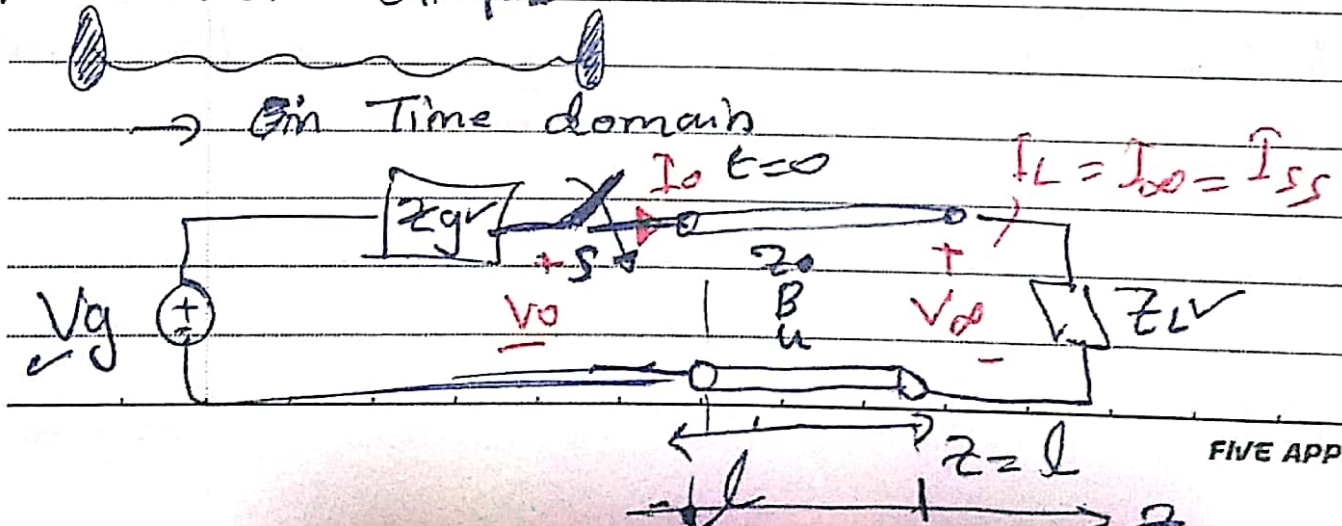 → in Time domain
I₀ t=0 I_L = I_∞ = I_ss
Zg✓
+ S Z₀ +
Vg V₀ B V_∞ Z_L✓
✓ u -
z = l
l
FIVE APP
z